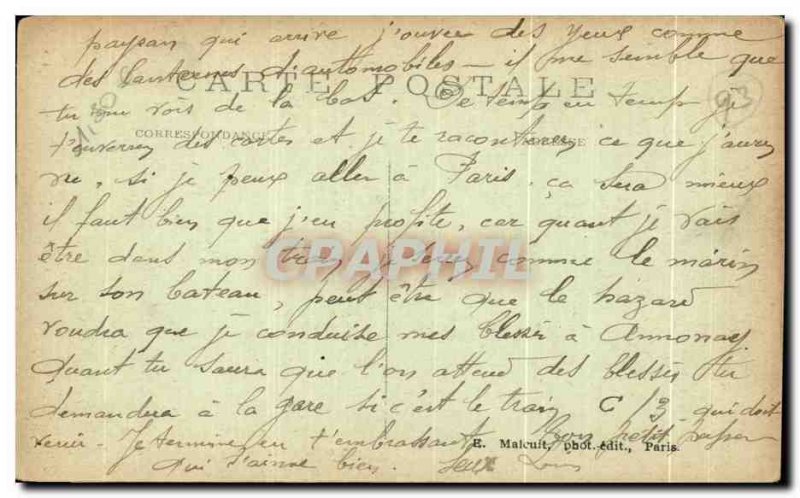 paysan qui arrive j'ouvre des yeux comme
des lanternes d'automobiles – il me semble que
CARTE POSTALE
tu me vois de la bas. De temp en temp je
CORRESPONDANCE
t'enverrez des cartes et je te raconterez ce que j'aurez
vu, si je peux aller à Paris. ça sera mieux
il faut bien que j'en profite, car quant je vais
être dans mon train je serez comme le marin
CPAPHIL
sur son bateau, peut être que le hazard
voudra que je conduise mes blessés à Annonay
Quant tu saura que l'on attend des blessés tu
demandera à la gare si c'est le train C 13 qui doit
venir. Je termine en t'embrassant Ton petit
E. Malcuit, phot.-édit., Paris.
qui t'aime bien. Louis
93